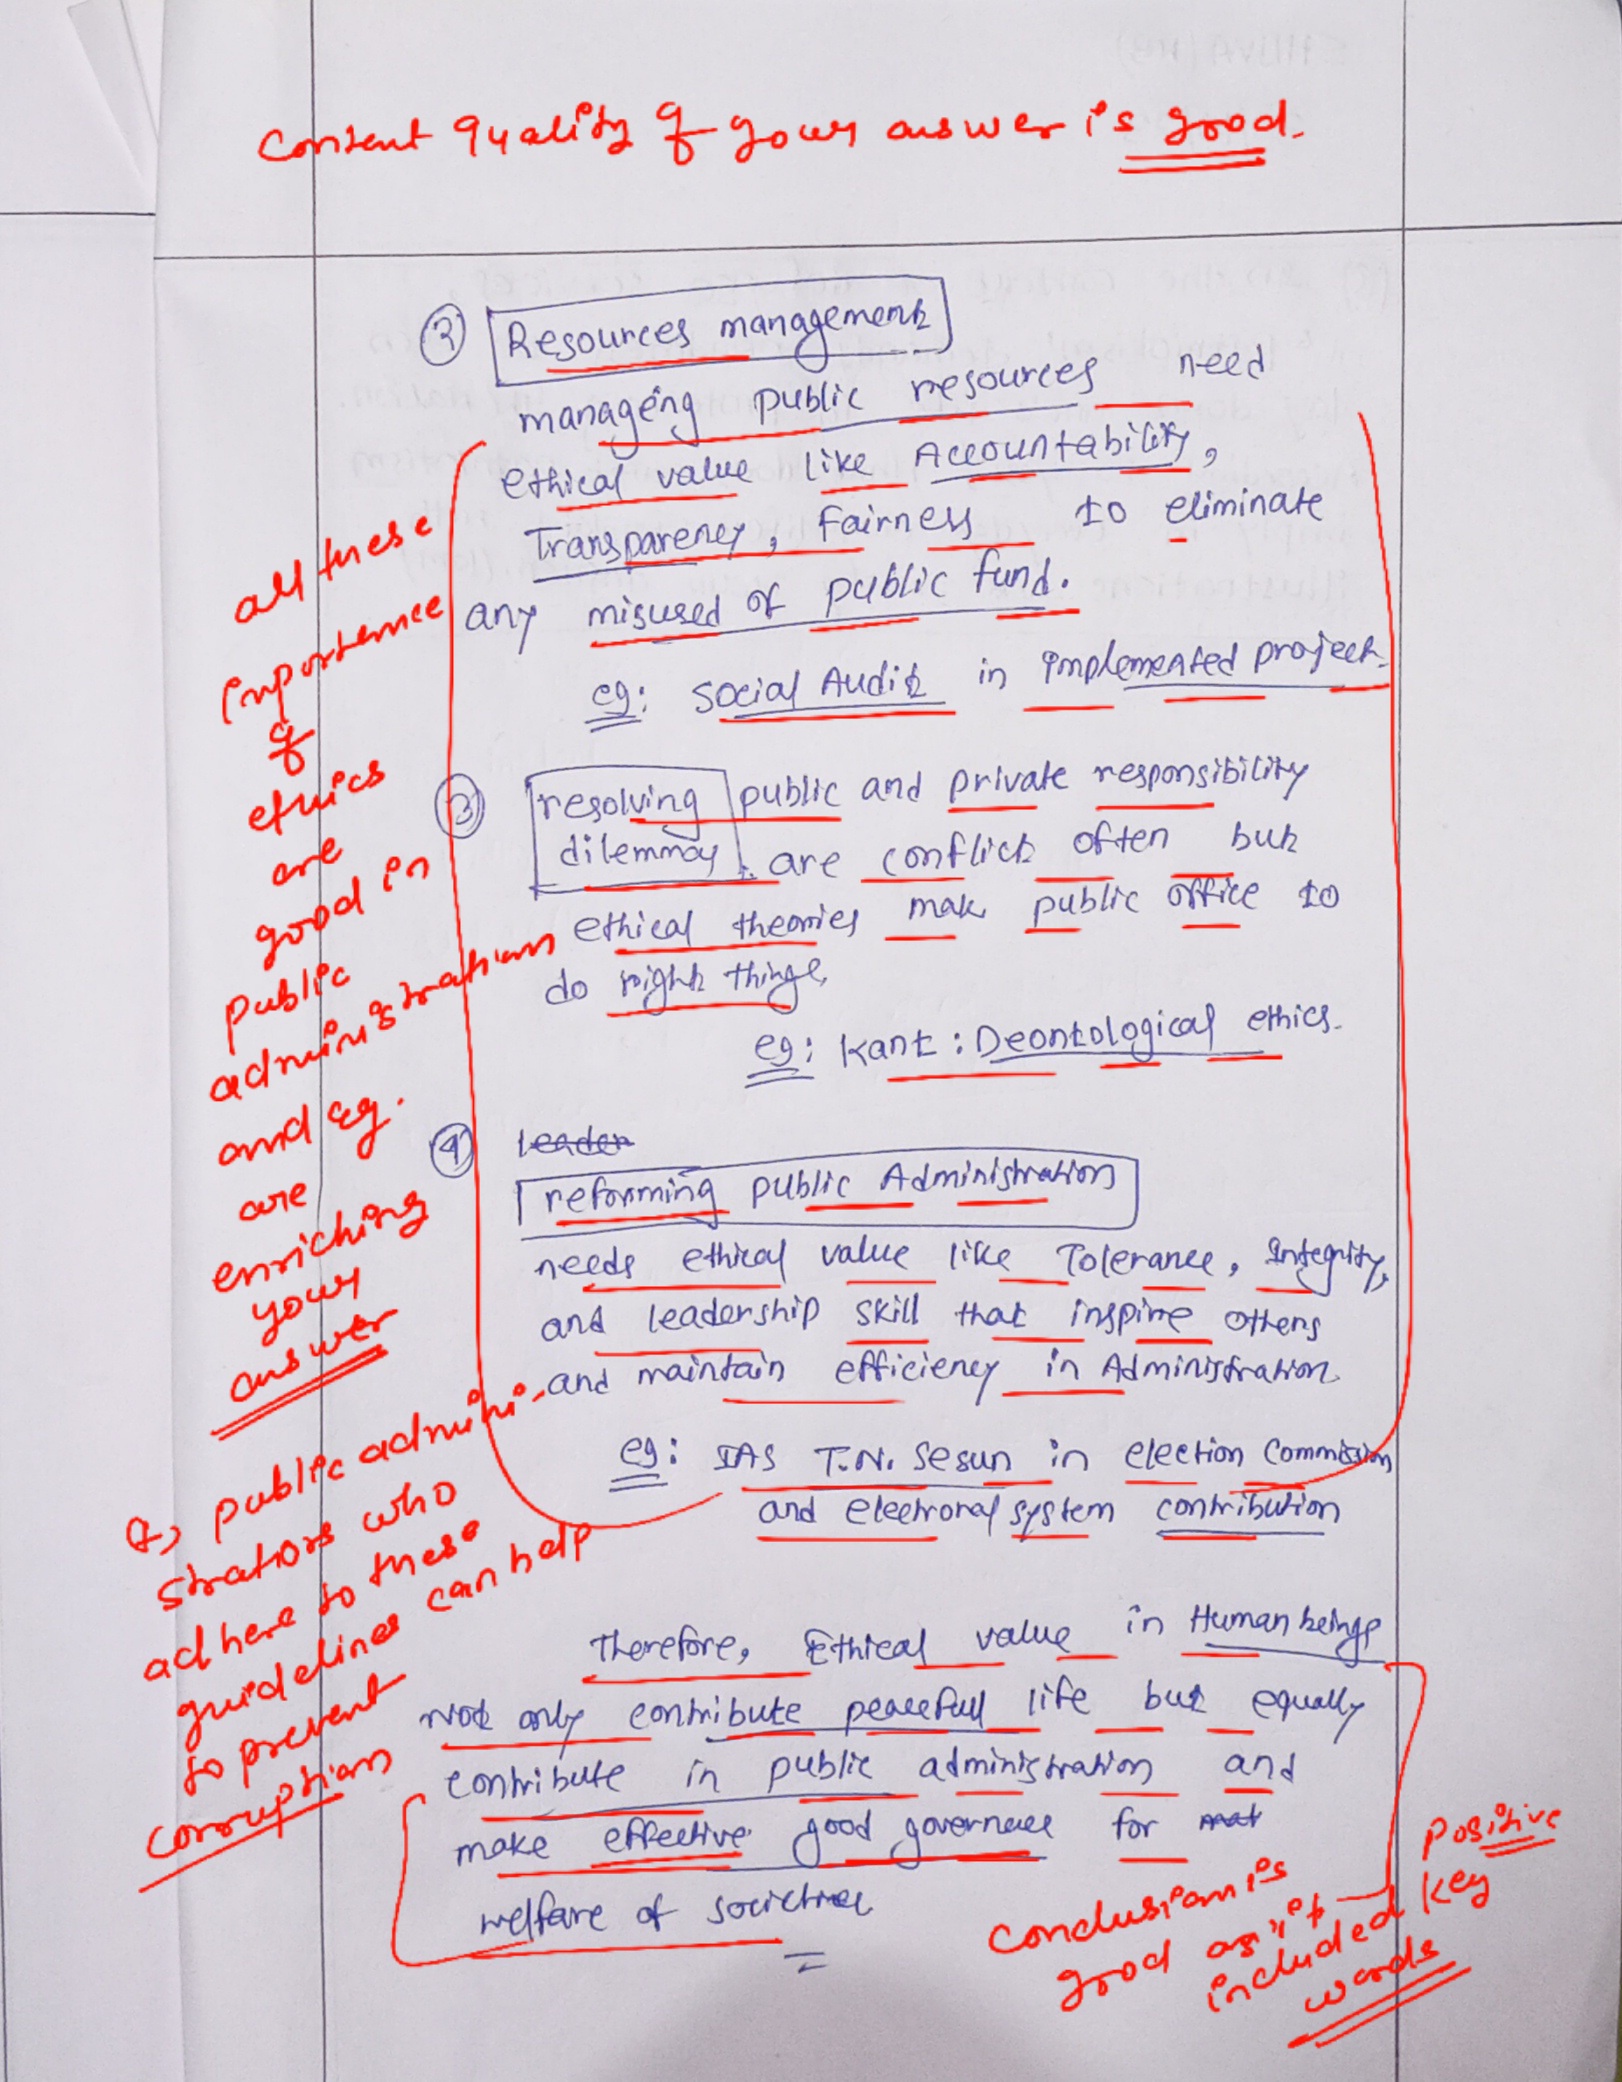 Content quality of your answer is good.
② Resources management
managing public resources need
ethical value like Accountability,
Transparency, fairness to eliminate
any misused of public fund.
eg: Social Audit in implemented project.
③ resolving public and private responsibility
dilemmay are conflict often but
ethical theories make public office to
do right things,
eg: Kant: Deontological ethics.
④ leader
reforming public Administration
needs ethical value like Tolerance, Integrity,
and leadership skill that inspire others
and maintain efficiency in Administration.
eg: IAS T.N. Sesun in election Commission
and electroral system contribution
Therefore, Ethical value in Human beings
Not only contribute peacefull life but equally
contribute in public administration and
make effective good governace for
welfare of
all these
importance
of
ethics
are
good in
public
administration
and eg.
are
enriching
your
answer
public admini-
strators who
adhere to these
guidelines can help
to prevent
corruption
Conclusion is
good as it
included
positive
key
words